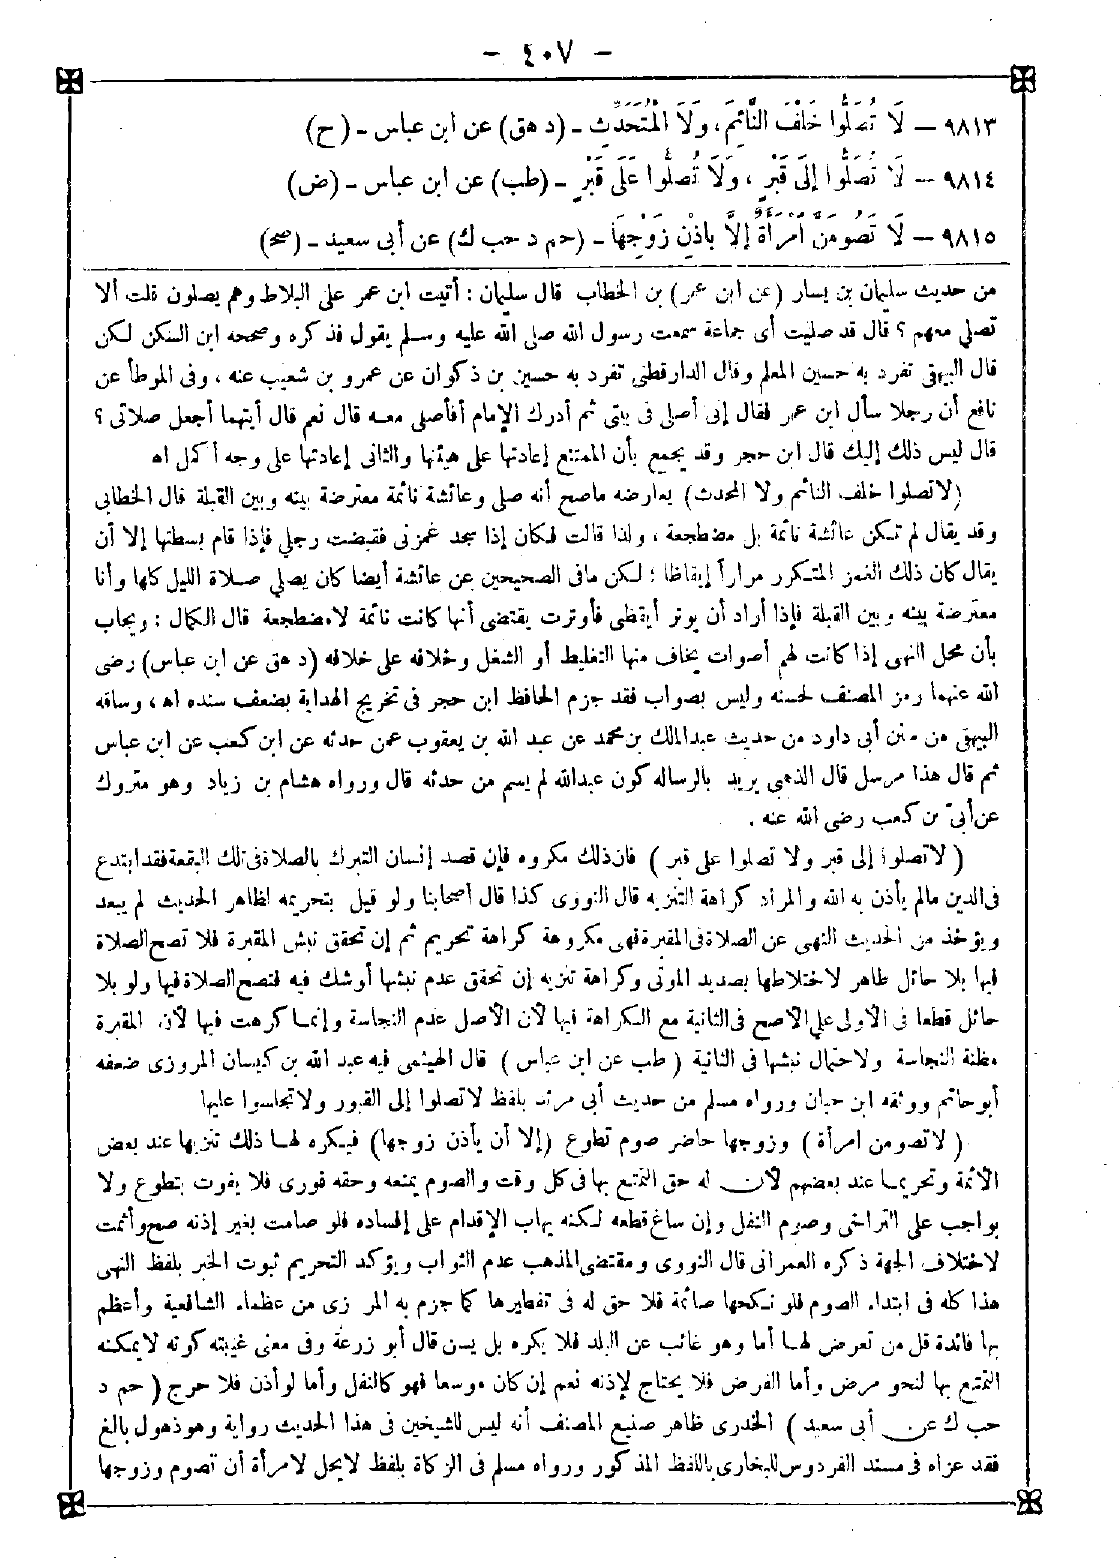 – ٤٠٧ –
٩٨١٣ – لَا تُصَلُّوا خَلْفَ النَّائِمِ، وَلَا الْمُتَحَدِّثِ – (د هق) عن ابن عباس – (ح)
٩٨١٤ – لَا تُصَلُّوا إِلَى قَبْرٍ، وَلَا تُصَلُّوا عَلَى قَبْرٍ – (طب) عن ابن عباس – (ض)
٩٨١٥ – لَا تَصُومَنَّ امْرَأَةٌ إِلَّا بِإِذْنِ زَوْجِهَا – (حم د حب ك) عن أبى سعيد – (صح)
من حديث سليمان بن يسار (عن ابن عمر) بن الخطاب قال سليمان : أتيت ابن عمر على البلاط وهم يصلون قلت ألا
تصلي معهم ؟ قال قد صليت أى جماعة سمعت رسول الله صلى الله عليه وسلم يقول فذكره وصححه ابن السكن لكن
قال البيهقي تفرد به حسين المعلم وقال الدارقطني تفرد به حسين بن ذكوان عن عمرو بن شعيب عنه ، وفى الموطأ عن
نافع أن رجلا سأل ابن عمر فقال إنى أصلى فى بيتى ثم أدرك الإمام أفأصلى معه قال نعم قال أيتهما أجعل صلاتى ؟
قال ليس ذلك إليك قال ابن حجر وقد يجمع بأن الممتنع إعادتها على هيئتها والثانى إعادتها على وجه أكمل اه
(لاتصلوا خلف النائم ولا المحدث) يعارضه ماصح أنه صلى وعائشة نائمة معترضة بينه وبين القبلة قال الخطابى
وقد يقال لم تكن عائشة نائمة بل مضطجعة ، ولذا قالت فكان إذا سجد غمزنى فقبضت رجلي فإذا قام بسطتها إلا أن
يقال كان ذلك الغمز المتكرر مراراً إيقاظا ؛ لكن مافى الصحيحين عن عائشة أيضا كان يصلي صلاة الليل كلها وأنا
معترضة بينه وبين القبلة فإذا أراد أن يوتر أيقظى فأوترت يقتضى أنها كانت نائمة لامضطجعة قال الكمال : ويجاب
بأن محل النهى إذا كانت لهم أصوات يخاف منها التغليط أو الشغل وخلافه على خلافه (د هق عن ابن عباس) رضى
الله عنهما رمز المصنف لحسنه وليس بصواب فقد جزم الحافظ ابن حجر فى تخريج الهداية بضعف سنده اه ، وساقه
البيهقى من سنن أبى داود من حديث عبدالملك بن محمد عن عبد الله بن يعقوب عمن حدثه عن ابن كعب عن ابن عباس
ثم قال هذا مرسل قال الذهبى يريد بالرساله كون عبدالله لم يسم من حدثه قال ورواه هشام بن زياد وهو متروك
عن أبىّ بن كعب رضى الله عنه .
( لاتصلوا إلى قبر ولا تصلوا على قبر ) فان ذلك مكروه فإن قصد إنسان التبرك بالصلاة فى تلك البقعة فقد ابتدع
فى الدين مالم يأذن به الله والمراد كراهة التنزيه قال النووى كذا قال أصحابنا ولو قيل بتحريمه لظاهر الحديث لم يبعد
ويؤخذ من الحديث النهى عن الصلاة فى المقبرة فهى مكروهة كراهة تحريم ثم إن تحقق نبش المقبرة فلا تصح الصلاة
فيها بلا حائل طاهر لاختلاطها بصديد الموتى وكراهة تنزيه إن تحقق عدم نبشها أوشك فيه فتصح الصلاة فيها ولو بلا
حائل قطعا فى الأولى على الأصح فى الثانية مع الكراهة فيها لأن الأصل عدم النجاسة وإنما كرهت فيها لأن المقبرة
مظنة النجاسة ولاحتمال نبشها فى الثانية ( طب عن ابن عباس ) قال الهيثمى فيه عبد الله بن كيسان المروزى ضعفه
أبوحاتم ووثقه ابن حبان ورواه مسلم من حديث أبى مرثد بلفظ لاتصلوا إلى القبور ولاتجلسوا عليها
( لاتصومن امرأة ) وزوجها حاضر صوم تطوع (إلا أن يأذن زوجها) فيكره لها ذلك تنزيها عند بعض
الأئمة وتحريما عند بعضهم لأن له حق التمتع بها فى كل وقت والصوم يمنعه وحقه فورى فلا يفوت بتطوع ولا
بواجب على التراخى وصوم النفل وإن ساغ قطعه لكنه يهاب الإقدام على إفساده فلو صامت بغير إذنه صح وأثمت
لاختلاف الجهة ذكره العمرانى قال النووى ومقتضى المذهب عدم الثواب ويؤكد التحريم ثبوت الخبر بلفظ النهى
هذا كله فى ابتداء الصوم فلو نكحها صائمة فلا حق له فى تفطيرها كما جزم به المر زى من عظماء الشافعية وأعظم
بها فائدة قل من تعرض لها أما وهو غائب عن البلد فلا يكره بل يسن قال أبو زرعة وفى معنى غيبته كونه لايمكنه
التمتع بها لنحو مرض وأما الفرض فلا يحتاج لإذنه نعم إن كان موسعا فهو كالنفل وأما لو أذن فلا حرج ( حم د
حب ك عن أبى سعيد ) الخدرى ظاهر صنيع المصنف أنه ليس للشيخين فى هذا الحديث رواية وهو ذهول بالغ
فقد عزاه فى مسند الفردوس للبخارى باللفظ المذكور ورواه مسلم فى الزكاة بلفظ لايحل لامرأة أن تصوم وزوجها